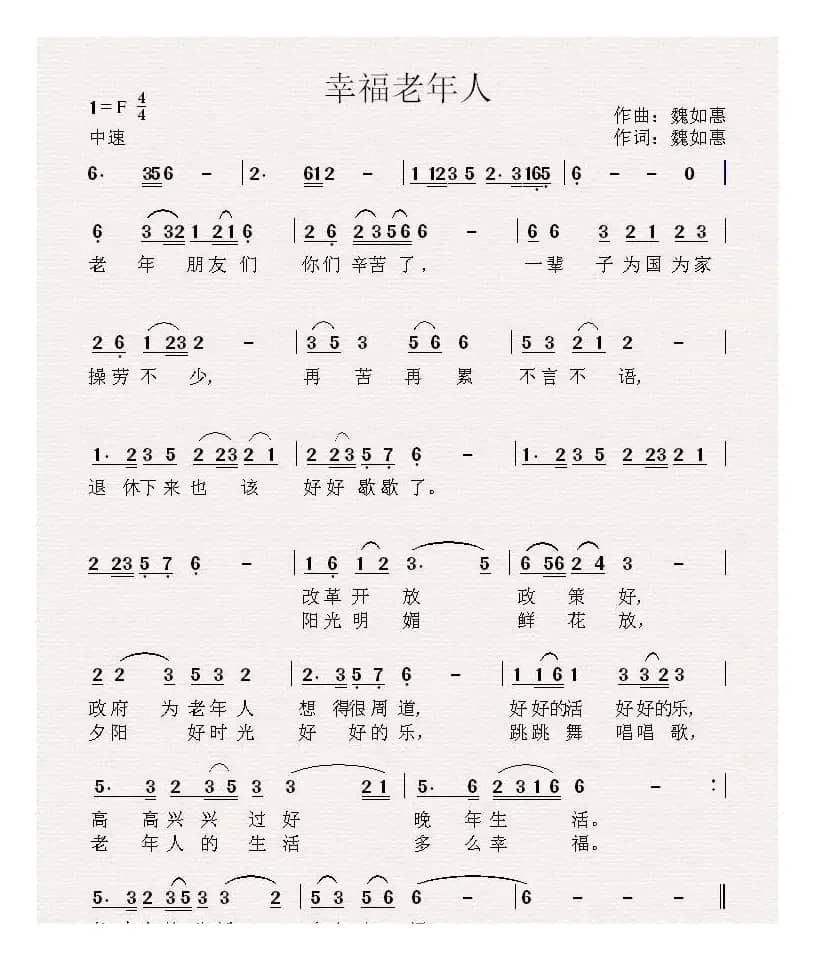 幸福老年人
1=F 4/4
作曲：魏如惠
中速
作词：魏如惠
6· 356 - | 2· 612 - | 1 123 5 2·3165 | 6 - - 0 |
6 3 321 216 | 26 23566 - | 66 3 21 23 |
老 年 朋友们 你们辛苦了， 一辈 子为国为家
26 1232 - | 35 3 56 6 | 53 21 2 - |
操劳不 少， 再 苦 再 累 不言不 语，
1· 235 22321 | 22357 6 - | 1· 235 22321 |
退 休下来也 该 好好歇歇了。
22357 6 - | 16 12 3· 5 | 65624 3 - |
改革开 放 政 策 好，
阳光明 媚 鲜 花 放，
22 3 53 2 | 2· 357 6 - | 1161 3323 |
政府 为 老年人 想 得很周道， 好好的活 好好的乐，
夕阳 好时光 好 好的乐， 跳跳 舞 唱唱 歌，
5· 3 2 35 3 3 21 | 5· 6 2316 6 - :|
高 高兴兴 过好 晚 年生 活。
老 年人的 生活 多 么幸 福。
5· 32353 3 2 | 53 56 6 - | 6 - - - ‖